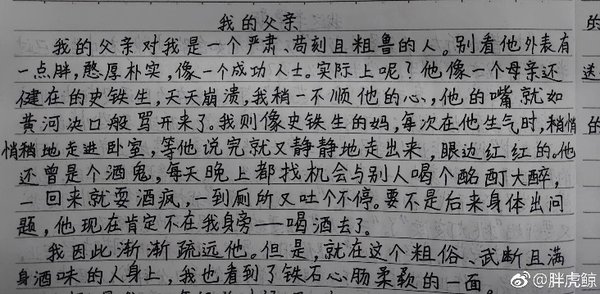 我的父亲
我的父亲对我是一个严肃、苛刻且粗鲁的人。别看他外表有
一点胖，憨厚朴实，像一个成功人士。实际上呢？他像一个母亲还
健在的史铁生，天天崩溃，我稍一不顺他的心，他的嘴就如
黄河决口般骂开来了。我则像史铁生的妈，每次在他生气时，稍悄
悄稍地走进卧室，等他说完就又静静地走出来，眼边红红的。他
还曾是个酒鬼，每天晚上都找机会与别人喝个酩酊大醉，
一回来就耍酒疯，一到厕所又吐个不停。要不是后来身体出问
题，他现在肯定不在我身旁——喝酒去了。
我因此渐渐疏远他。但是，就在这个粗俗、武断且满
身酒味的人身上，我也看到了铁石心肠柔软的一面。
的
透
的
@胖虎鲸